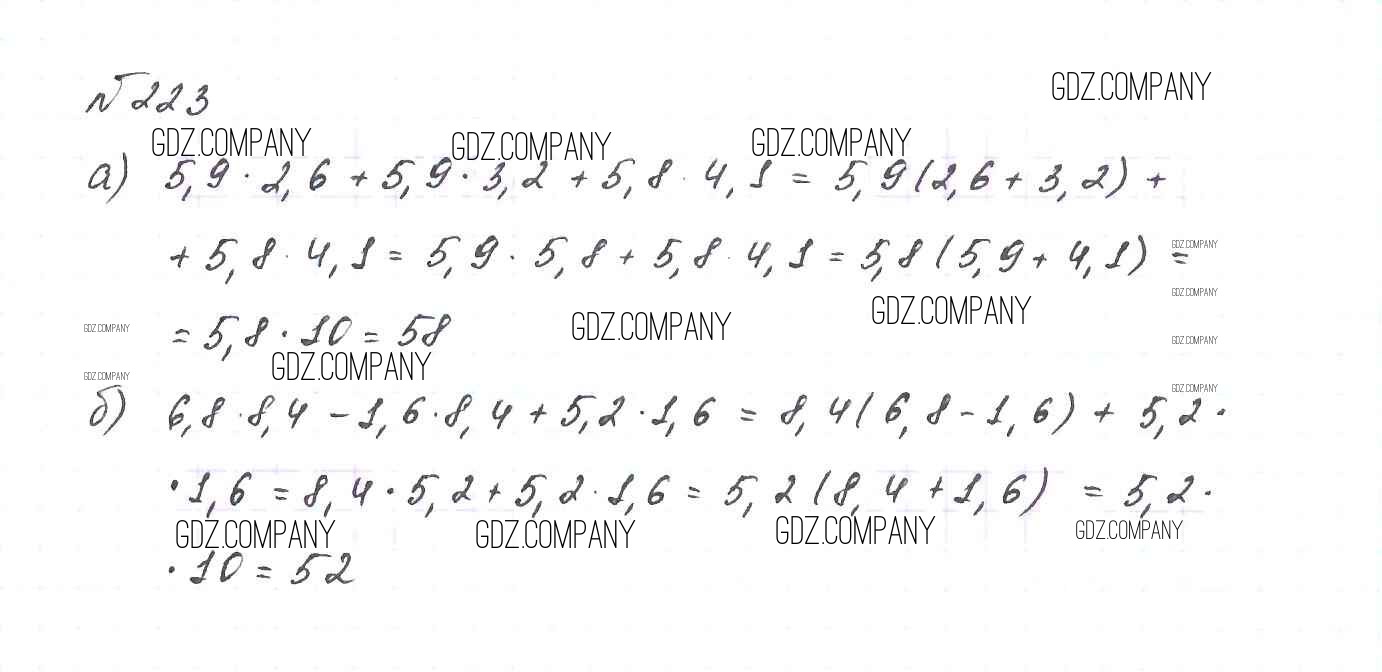 № 223
GDZ.COMPANY
GDZ.COMPANY GDZ.COMPANY GDZ.COMPANY
а) 5,9 · 2,6 + 5,9 · 3,2 + 5,8 · 4,1 = 5,9(2,6 + 3,2) +
+ 5,8 · 4,1 = 5,9 · 5,8 + 5,8 · 4,1 = 5,8(5,9 + 4,1) =
GDZ.COMPANY
GDZ.COMPANY
GDZ.COMPANY GDZ.COMPANY
= 5,8 · 10 = 58
GDZ.COMPANY
GDZ.COMPANY
GDZ.COMPANY
GDZ.COMPANY
GDZ.COMPANY
б) 6,8 · 8,4 – 1,6 · 8,4 + 5,2 · 1,6 = 8,4(6,8 – 1,6) + 5,2 ·
· 1,6 = 8,4 · 5,2 + 5,2 · 1,6 = 5,2(8,4 + 1,6) = 5,2 ·
GDZ.COMPANY GDZ.COMPANY GDZ.COMPANY GDZ.COMPANY
· 10 = 52